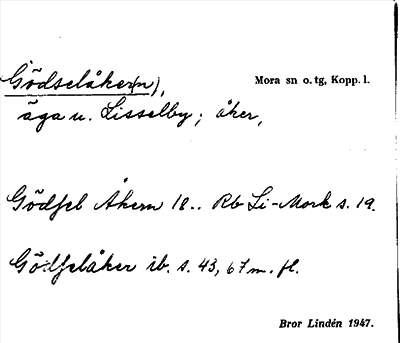 Gödselåker(n),
Mora sn o. tg, Kopp. l.
äga u. Lisselby; åker,
Gödsel Åkern 18.. Rb Li-Mork s. 19.
Gödselåker ib. s. 43, 67 m. fl.
Bror Lindén 1947.